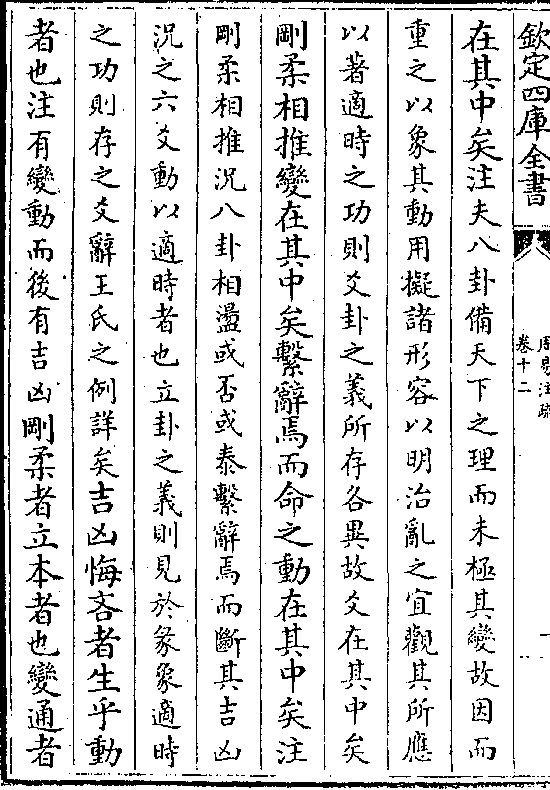 欽定四庫全書
周易注疏
卷十二
一
在其中矣注夫八卦備天下之理而未極其變故因而
重之以象其動用擬諸形容以明治亂之宜觀其所應
以著適時之功則爻卦之義所存各異故爻在其中矣
剛柔相推變在其中矣繫辭焉而命之動在其中矣注
剛柔相推況八卦相盪或否或泰繫辭焉而斷其吉凶
況之六爻動以適時者也立卦之義則見於彖象適時
之功則存之爻辭王氏之例詳矣吉凶悔吝者生乎動
者也注有變動而後有吉凶剛柔者立本者也變通者